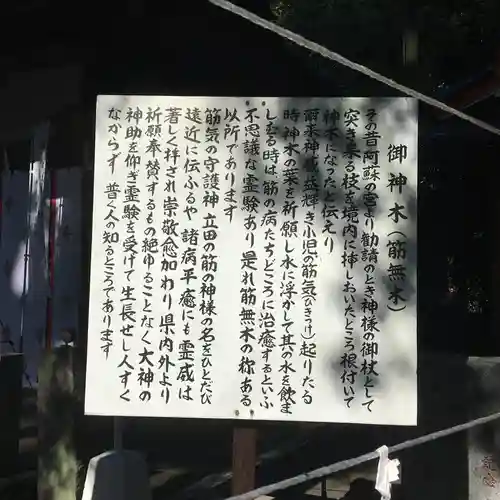 御神木（筋無木）
その昔阿蘇の宮より勧請のとき神様の御杖として
突き来る枝を境内に挿しおいたところ根付いて
神木になったと伝えり
爾来神威益輝き小児の筋気（ひきつけ）起りたる
時神木の葉を祈願し水に浮かして其の水を飲ま
しむる時は、筋の病たちどころに治癒するといふ
不思議な霊験あり是れ筋無木の称ある
以所であります
筋気の守護神 立田の筋の神様の名をひとたび
遠近に伝ふるや 諸病平癒にも霊威は
著しく拝され崇敬愈加わり県内外より
祈願奉賛するもの絶ゆることなく大神の
神助を仰ぎ霊験を受けて生長せし人すく
なからず 普く人の知るところであります